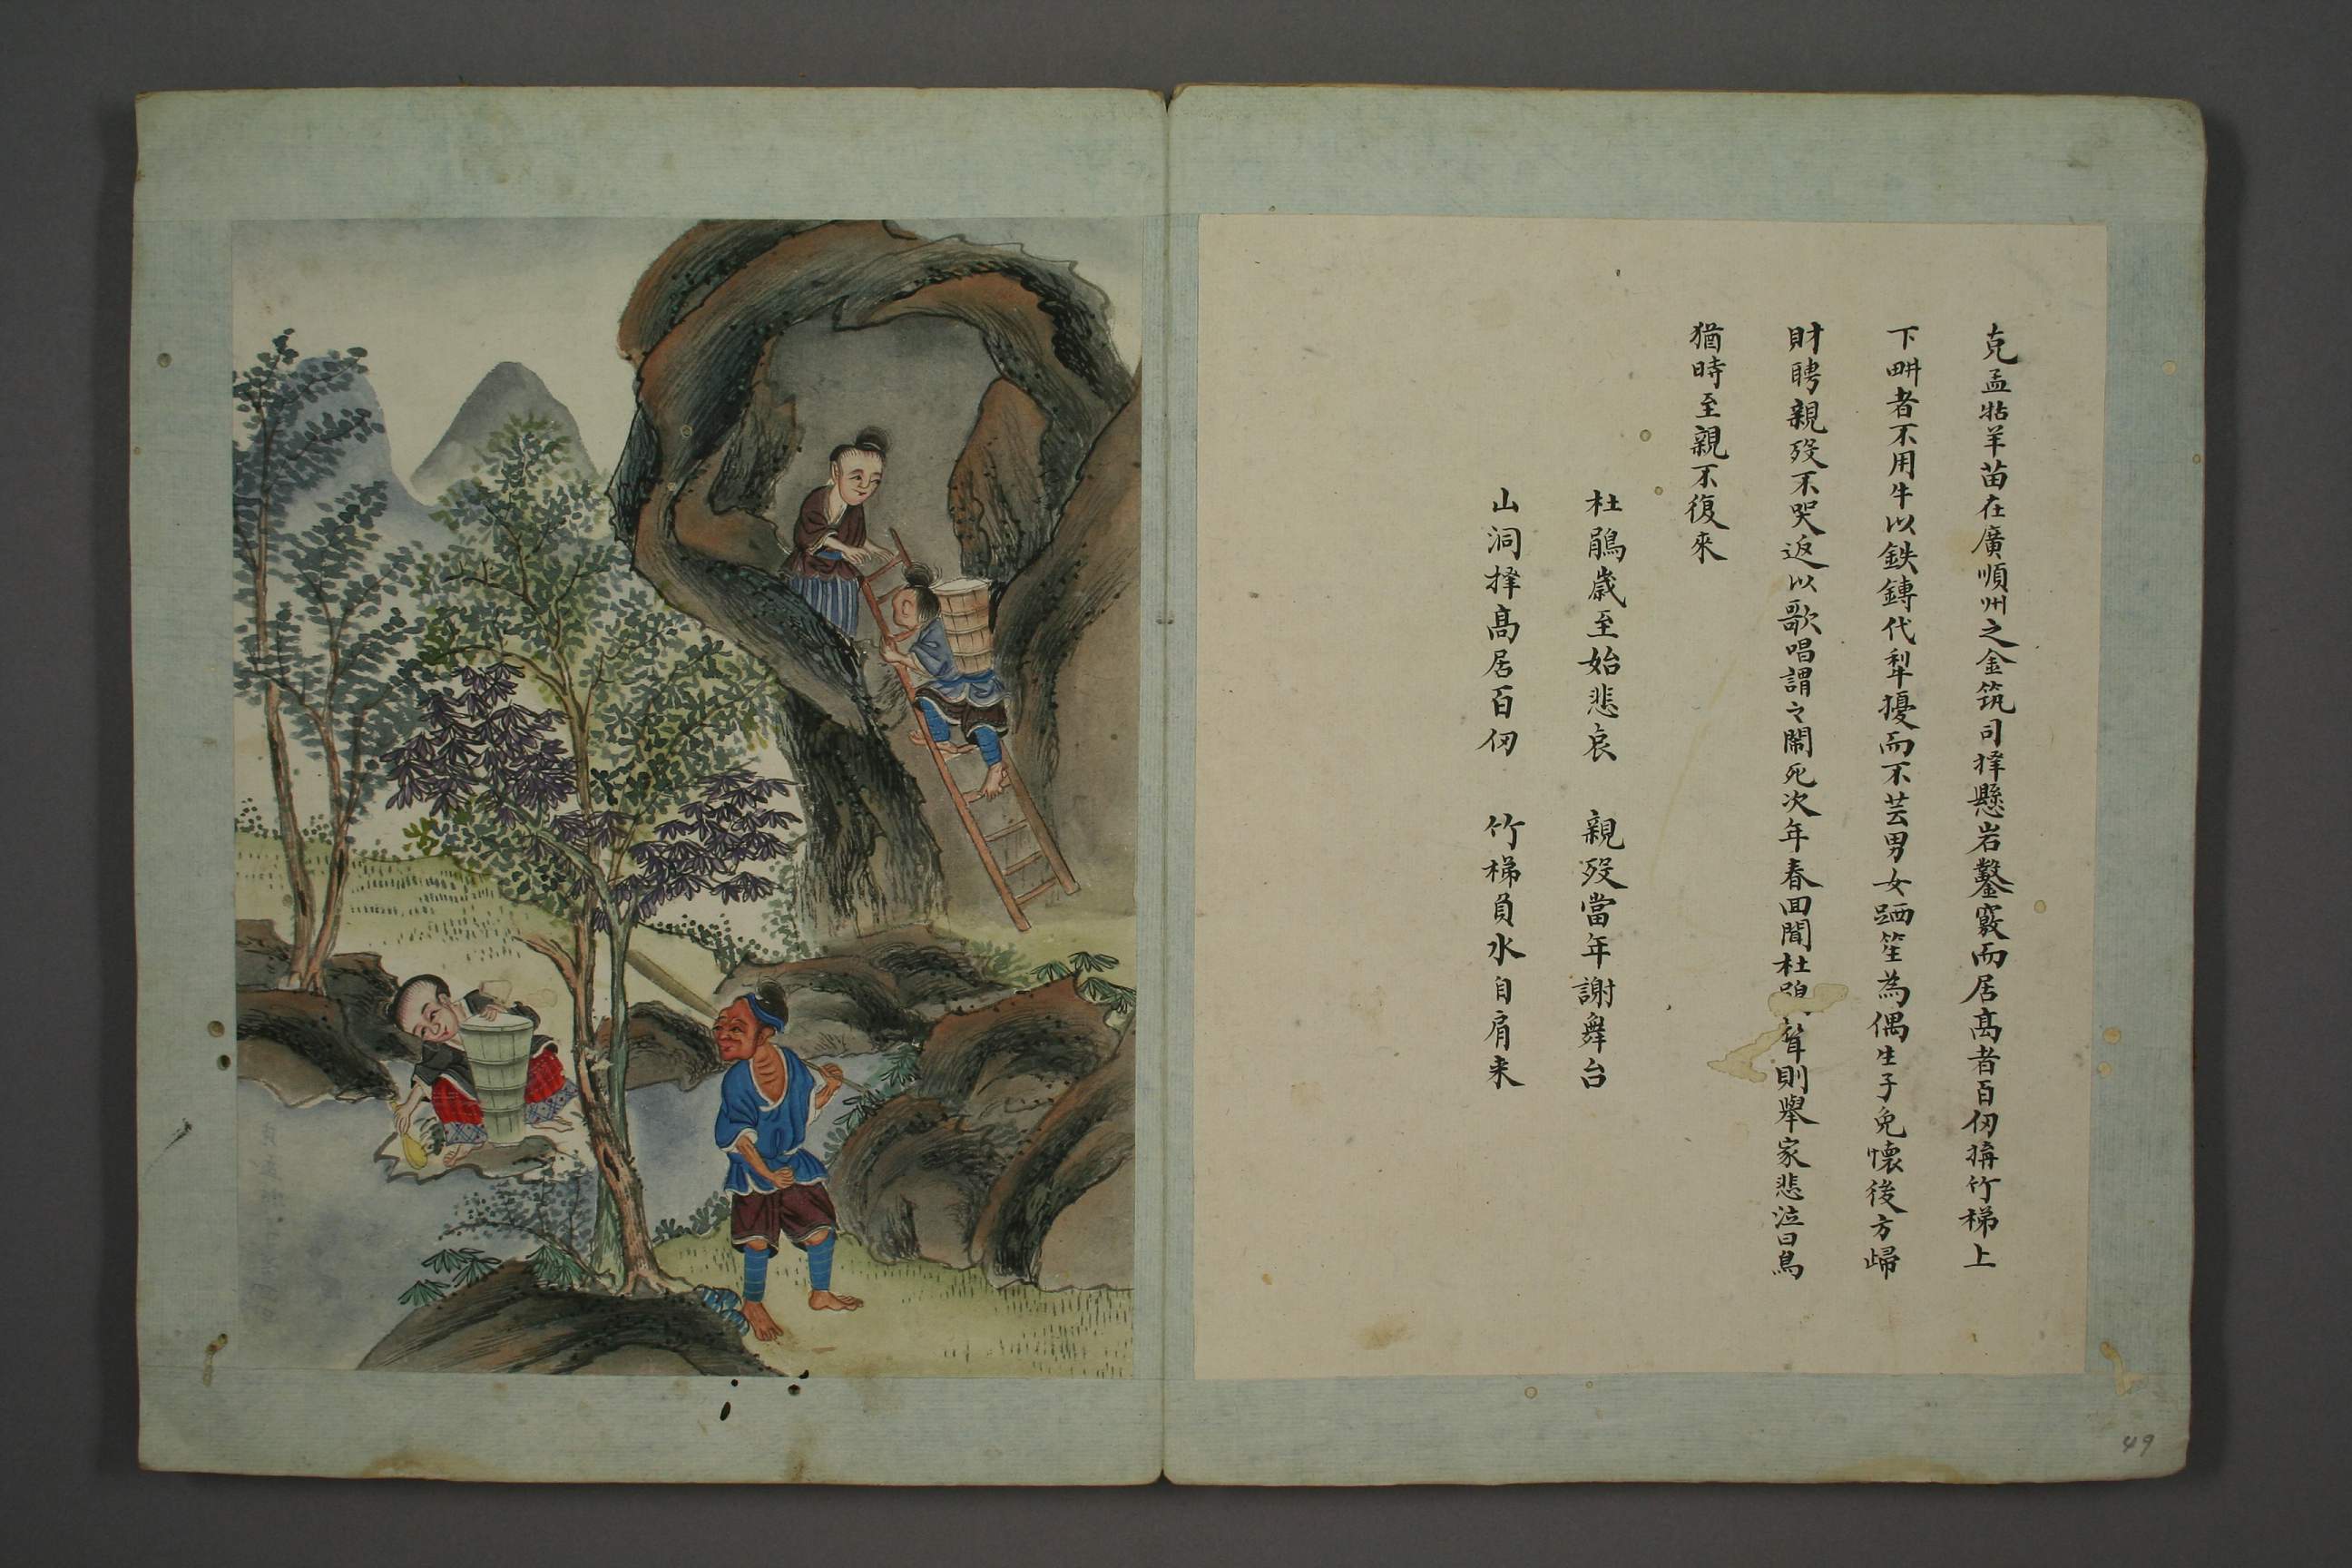 克孟牯羊苗在廣順州之金筑司擇懸岩鑿竅而居高者百仞搆竹梯上
下畊者不用牛以鉄鎛代犁擾而不芸男女跴笙為偶生子免懷後方歸
財聘親歿不哭返以歌唱謂之鬧死次年春回聞杜鵑聲則舉家悲泣曰鳥
猶時至親不復來
杜鵑歲至始悲哀 親歿當年謝舞台
山洞擇高居百仞 竹梯負水自肩来
49